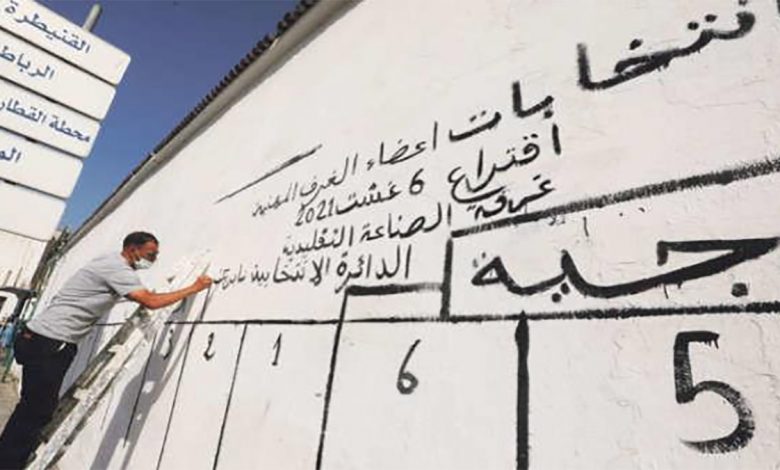 القنيطرة
الرباط
محطة القطار
انتخابات
انتخابات اعضاء الغرف المهنية
اقتراع 6 غشت 2021
غرفة الصناعة التقليدية
الدائرة الانتخابية
5
6
1
2
3